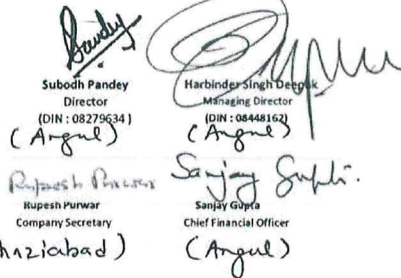 Pandey
Subodh Pandey
Director
(DIN : 08279634 )
(Angul)
Harbinder Singh Deepak
Managing Director
(DIN : 08448162)
(Angul)
Rupesh Purwar
Rupesh Purwar
Company Secretary
haziabad)
Sanjay Gupta.
Sanjay Gupta
Chief Financial Officer
(Angul)